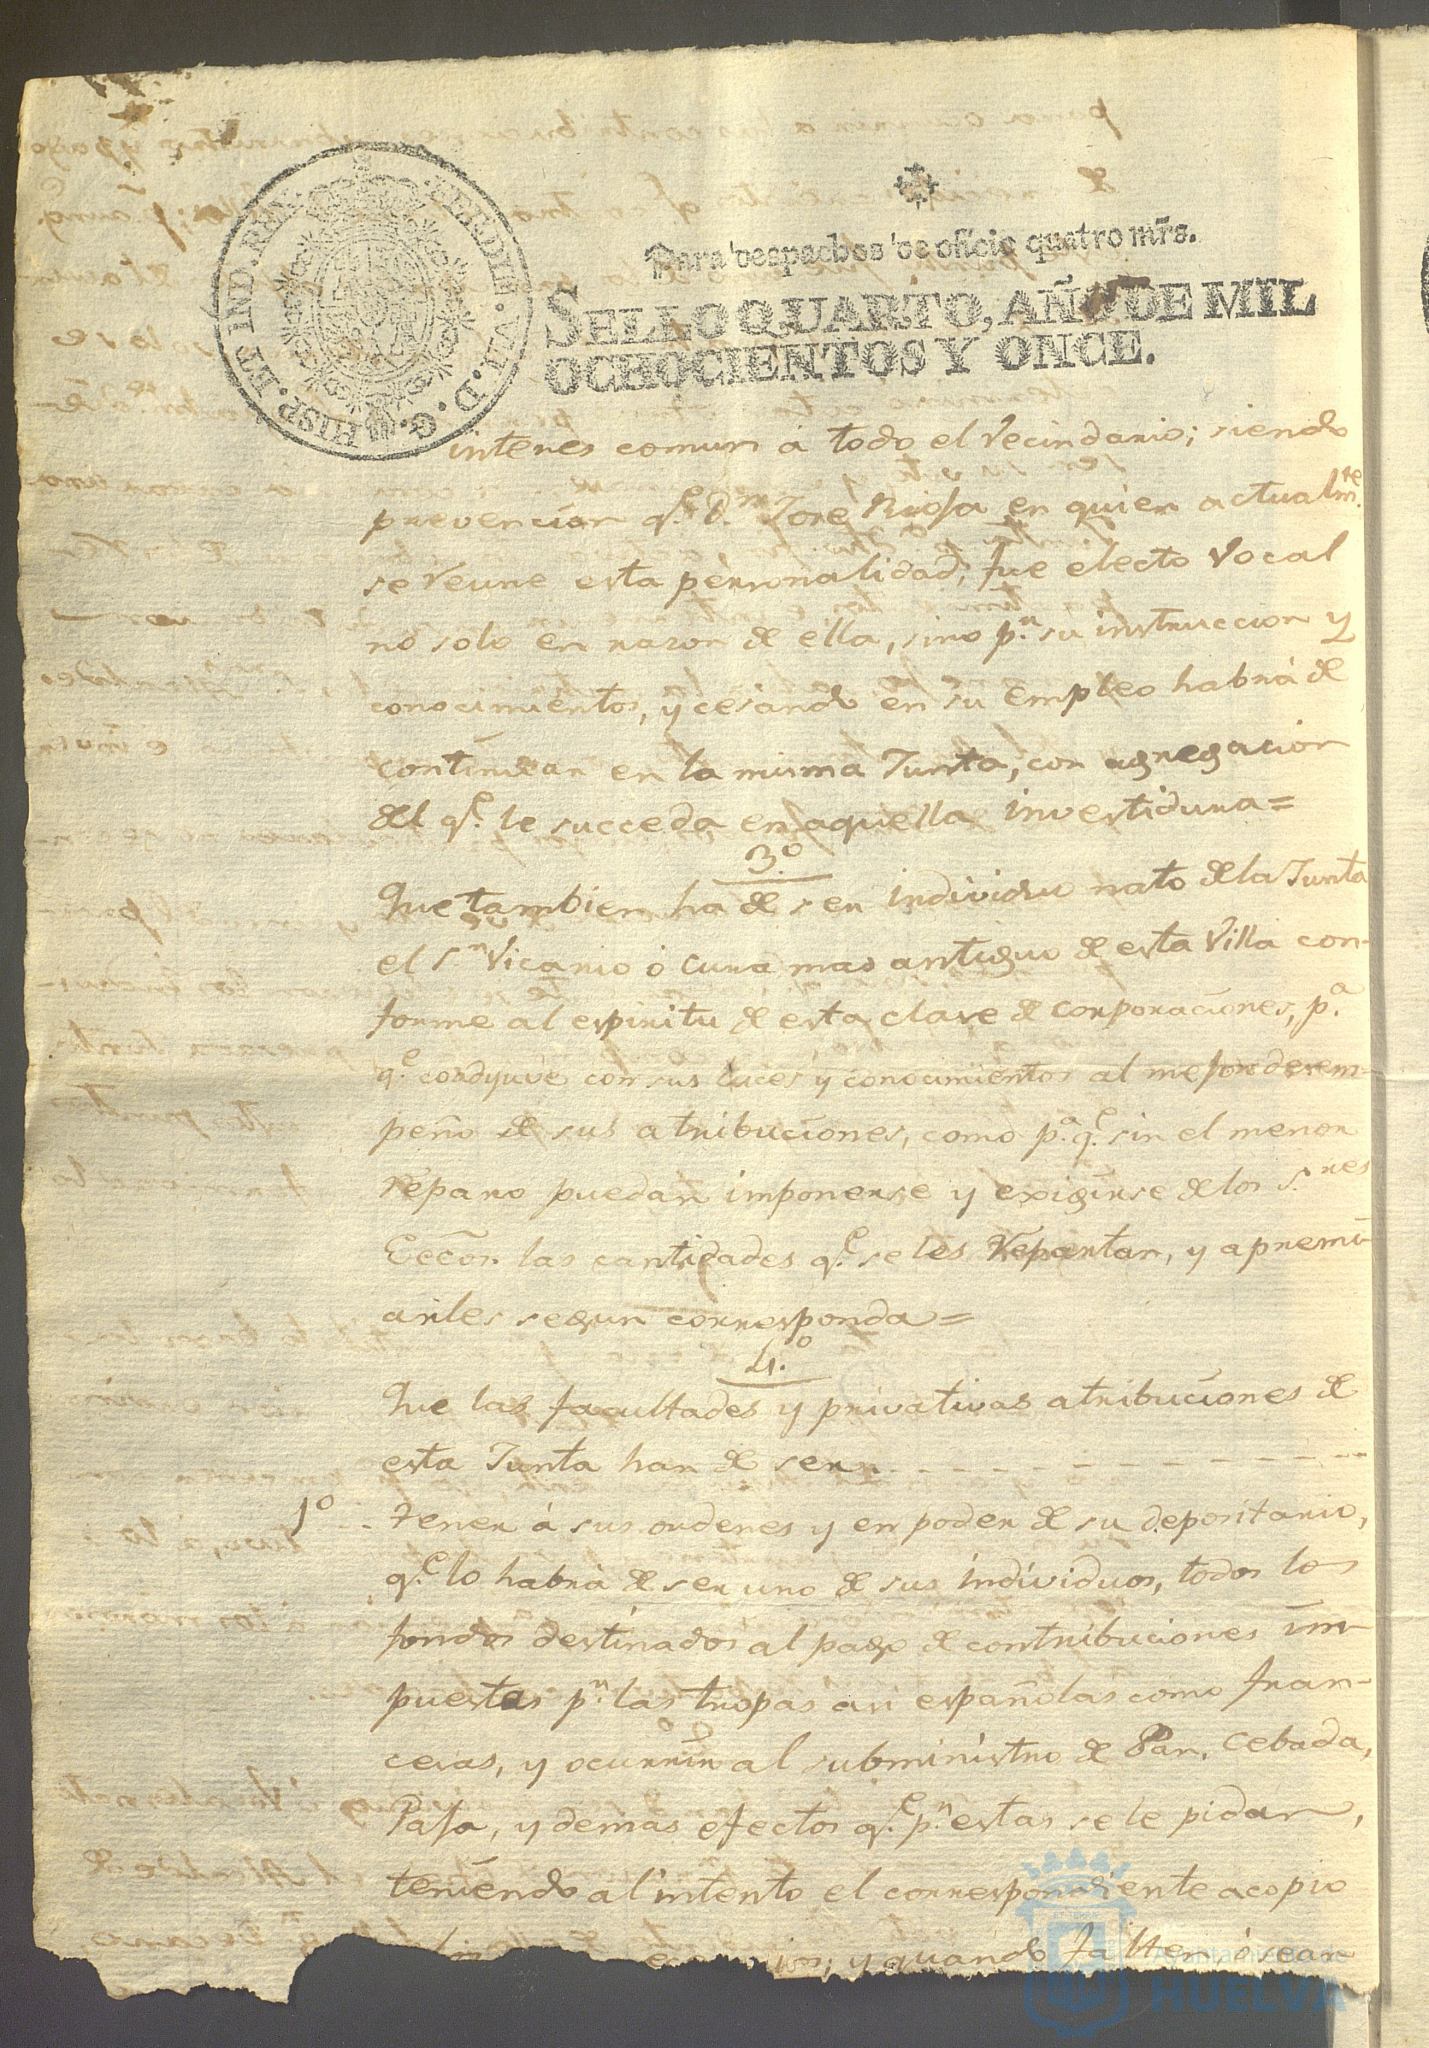 FERDIN. VII. D. G. HISP. ET IND. REX
Para despachos de oficio quatro mrs.
SELLO QUARTO, AÑO DE MIL
OCHOCIENTOS Y ONCE.
interes comun á todo el Vecindario; siendo
prevencion q.e D.n Jose Rioja en quien actualm.te
se reune esta personalidad, fue electo Vocal
no solo en razon de ella, sino p.r su instruccion y
conocimientos, y cesando en su empleo habrá de
continuar en la misma Junta, con agregacion
del q.e le succeda en aquella investidura=
3.o
Que tambien ha de ser individuo nato de la Junta
el S.r Vicario ó Cura mas antiguo de esta Villa con-
forme al espiritu de esta clase de corporaciones, p.a
q.e coadyuve con sus luces y conocimientos al mejor desem-
peño de sus atribuciones, como p.a q.e sin el menor
reparo puedan imponerse y exigirse de los S.res
Eccos. las cantidades q.e se les repartan, y apremi-
arles segun corresponda=
4.o
Que las facultades y privativas atribuciones de
esta Junta han de ser
1o tener á sus ordenes y en poder de su depositario,
q.e lo habrá de ser uno de sus individuos, todos los
fondos destinados al pago de contribuciones im-
puestas p.r las tropas asi españolas como fran-
cesas, y ocurrir al subministro de Pan, Cebada,
Paja, y demas efectos q.e p.r estas se le pidan,
teniendo al intento el correspondiente acopio
y quando falten, ó sean
Ayuntamiento de
HUELVA